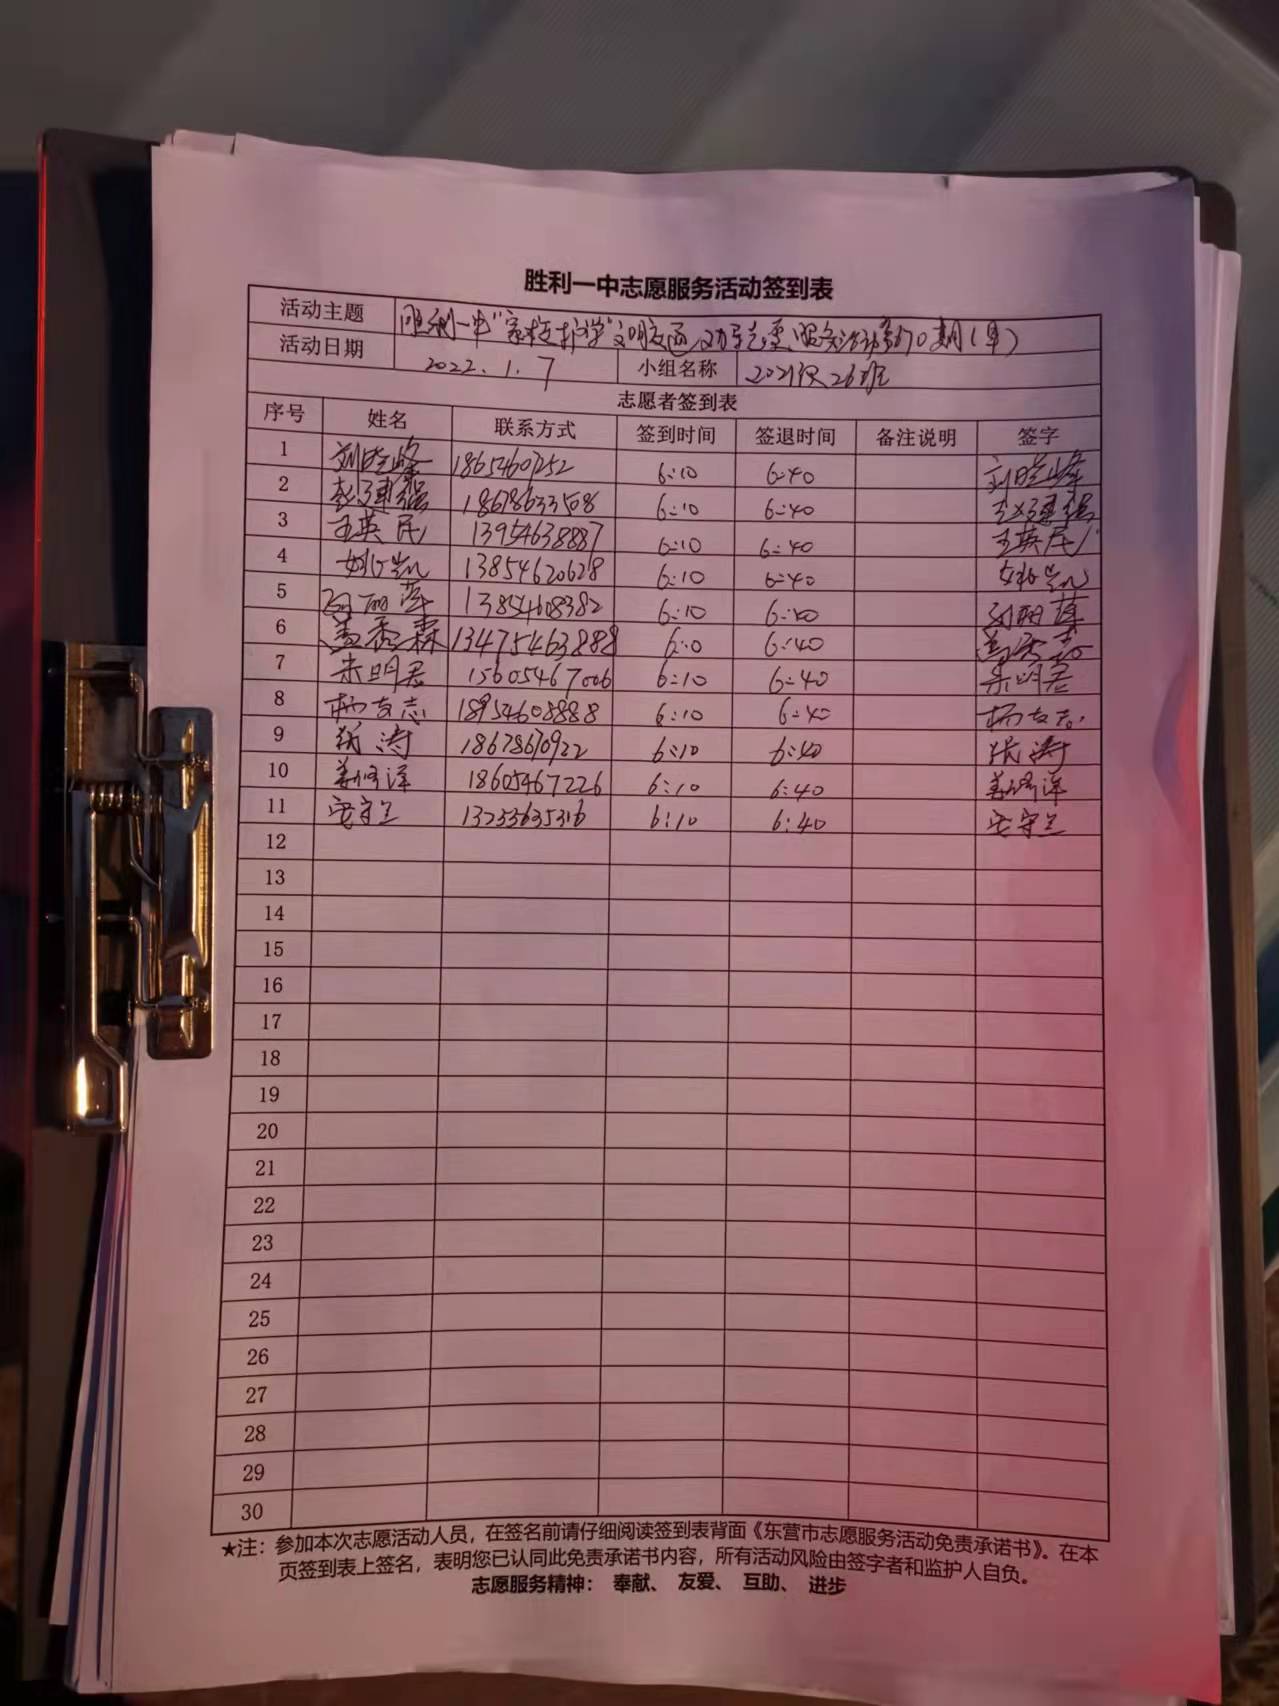 胜利一中志愿服务活动签到表
活动主题 胜利一中"家校护学"文明交通劝导志愿服务活动第70期(早)
活动日期 2022.1.7 小组名称 2021级26班
志愿者签到表
序号 姓名 联系方式 签到时间 签退时间 备注说明 签字
1 刘晓峰 6:10 6:40 刘晓峰
2 赵建强 18678633508 6:10 6:40 赵建强
3 王英民 13954638887 6:10 6:40 王英民
4 姚凯 13854620628 6:10 6:40 姚凯
5 丽萍 13854608382 6:10 6:40 丽萍
6 盖 森 13475463888 6:10 6:40 盖
7 朱明君 15605467006 6:10 6:40 朱明君
8 杨友志 18954608888 6:10 6:40 杨友志
9 张涛 18678670922 6:10 6:40 张涛
10 姜 洋 18605467226 6:10 6:40 姜 洋
11 安守兰 6:10 6:40 安守兰
12
13
14
15
16
17
18
19
20
21
22
23
24
25
26
27
28
29
30
★注：参加本次志愿活动人员，在签名前请仔细阅读签到表背面《东营市志愿服务活动免责承诺书》。在本
页签到表上签名，表明您已认同此免责承诺书内容，所有活动风险由签字者和监护人自负。
志愿服务精神： 奉献、 友爱、 互助、 进步